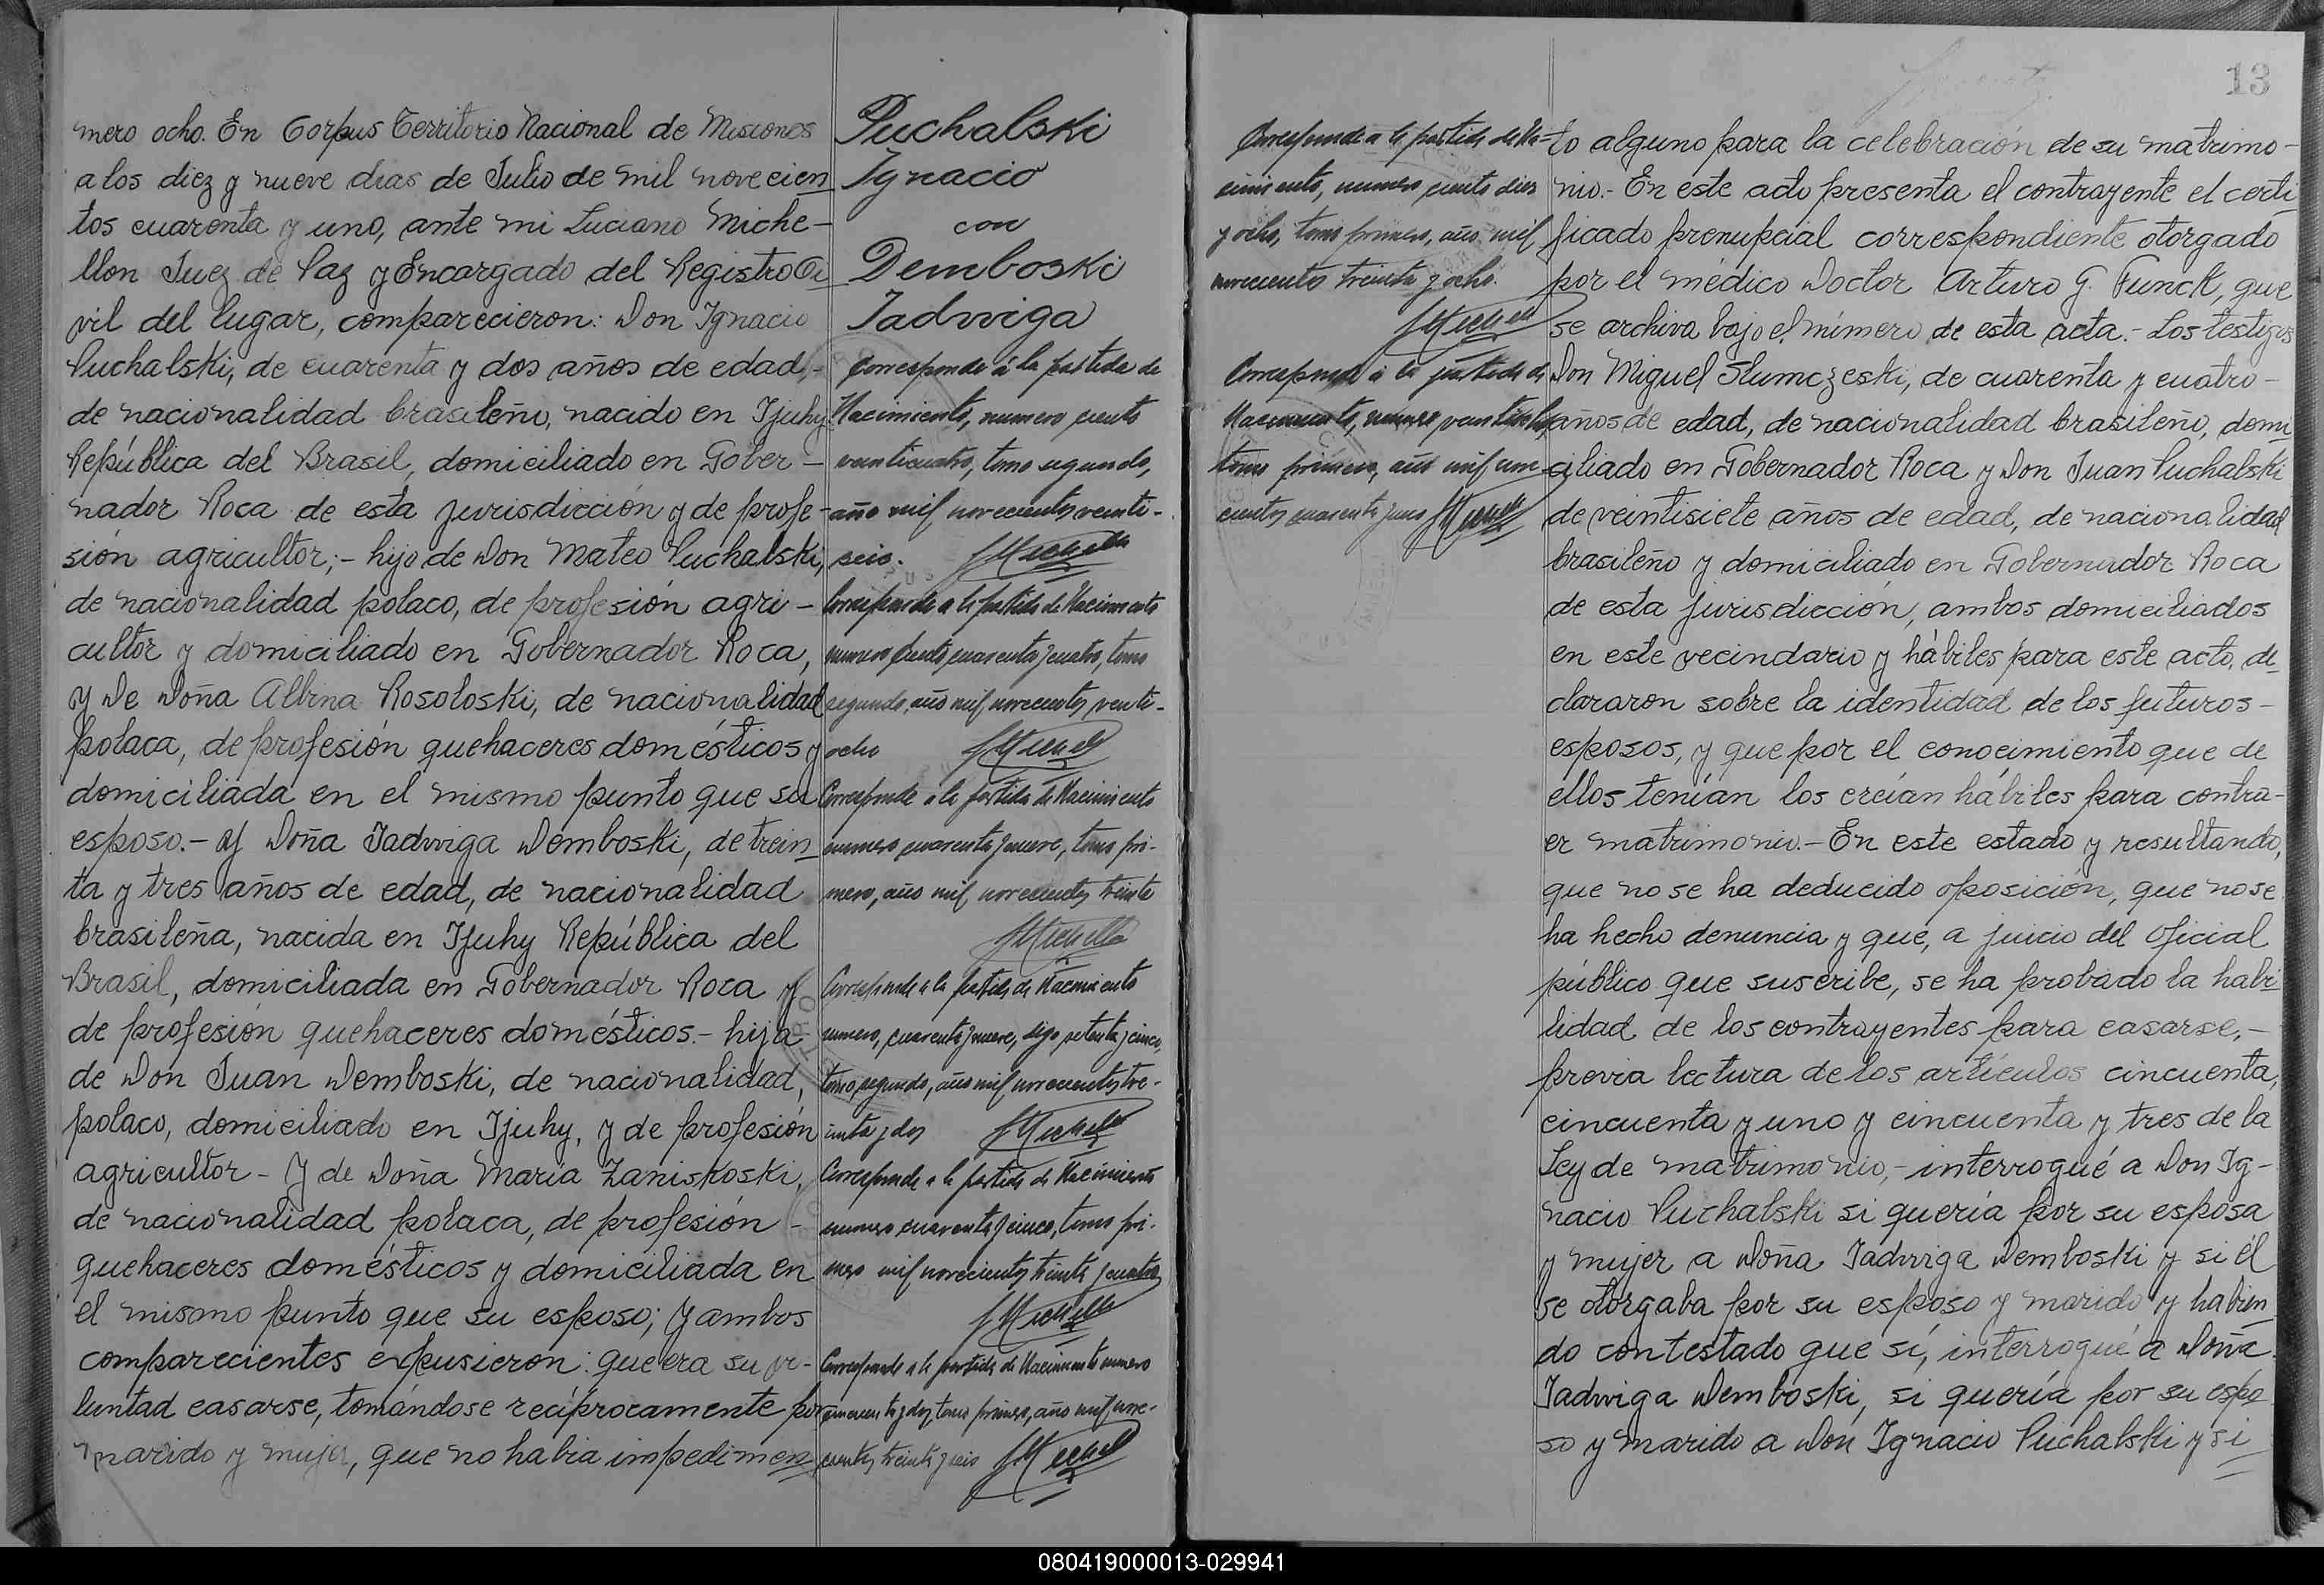 mero ocho. En Corpus Territorio Nacional de Misiones
a los diez y nueve dias de Julio de mil novecien
tos cuarenta y uno, ante mi Luciano Miche-
llon Juez de Paz y Encargado del Registro Ci
vil del lugar, comparecieron: Don Ignacio
Puchalski, de cuarenta y dos años de edad,-
de nacionalidad brasileño, nacido en Ijuhy
República del Brasil, domiciliado en Gober-
nador Roca de esta jurisdicción y de profe-
sión agricultor;- hijo de Don Mateo Puchalski,
de nacionalidad polaco, de profesión agri-
cultor y domiciliado en Gobernador Roca,
y De Doña Albina Rosoloski, de nacionalidad
polaca, de profesión quehaceres domésticos y
domiciliada en el mismo punto que su
esposo.- Y Doña Jadwiga Demboski, de trein
ta y tres años de edad, de nacionalidad
brasileña, nacida en Ijuhy República del
Brasil, domiciliada en Gobernador Roca y
de profesión quehaceres domésticos.- hija
de Don Juan Demboski, de nacionalidad,
polaco, domiciliado en Ijuhy, y de profesión
agricultor - Y de Doña Maria Zaniskoski,
de nacionalidad polaca, de profesión -
quehaceres domésticos y domiciliada en
el mismo punto que su esposo; Y ambos
comparecientes expusieron: que era su vo-
luntad casarse, tomándose recíprocamente por
marido y mujer, que no habia impedimen
Puchalski
Ignacio
con
Demboski
Jadwiga
Corresponde á la partida de
Nacimiento, numero ciento
veinticuatro, tomo segundo,
año mil novecientos veinti-
seis.
Corresponde a la partida de Nacimiento
numero ciento cuarenta y cuatro, tomo
segundo, año mil novecientos venti-
ocho
Corresponde a la partida de Nacimiento
numero cuarenta y nueve, tomo pri-
mero, año mil novecientos treinta
Corresponde a la partida de Nacimiento
numero, cuarenta y nueve, digo setenta y cinco,
tomo segundo, año mil novecientos tre-
inta y dos
Corresponde a la partida de Nacimiento
numero cuarenta y cinco, tomo pri-
mero mil novecientos treinta y cuatro
Corresponde a la partida de Nacimiento numero
cincuenta y dos, tomo primero, año mil nove-
cientos treinta y seis
13
Corresponde a la partida de Na-
cimiento, numero ciento diez
y ocho, tomo primero, año mil
novecientos treinta y ocho.
Corresponde a la partida de
Nacimiento, numero
tomo primero, año mil nove-
cientos cuarenta y uno
to alguno para la celebración de su matrimo-
nio.- En este acto presenta el contrayente el certi
ficado prenupcial correspondiente otorgado
por el médico Doctor Arturo G. Funck, que
se archiva bajo el número de esta acta.- Los testigos
Don Miguel Slumczeski, de cuarenta y cuatro-
años de edad, de nacionalidad brasileño, domi
ciliado en Gobernador Roca y Don Juan Puchalski
de veintisiete años de edad, de nacionalidad
brasileño y domiciliado en Gobernador Roca
de esta jurisdicción, ambos domiciliados
en este vecindario y hábiles para este acto, de
clararon sobre la identidad de los futuros-
esposos, y que por el conocimiento que de
ellos tenían los creían hábiles para contra-
er matrimonio.- En este estado y resultando,
que no se ha deducido oposición, que no se
ha hecho denuncia y que, a juicio del oficial
público que suscribe, se ha probado la habi
lidad de los contrayentes para casarse,-
previa lectura de los artículos cincuenta,
cincuenta y uno y cincuenta y tres de la
Ley de matrimonio,- interrogué a Don Ig-
nacio Puchalski si quería por su esposa
y mujer a Doña Jadwiga Demboski y si él
se otorgaba por su esposo y marido y habien
do contestado que sí, interrogué a Doña
Jadwiga Demboski, si quería por su espo
so y marido a Don Ignacio Puchalski y si
080419000013-029941